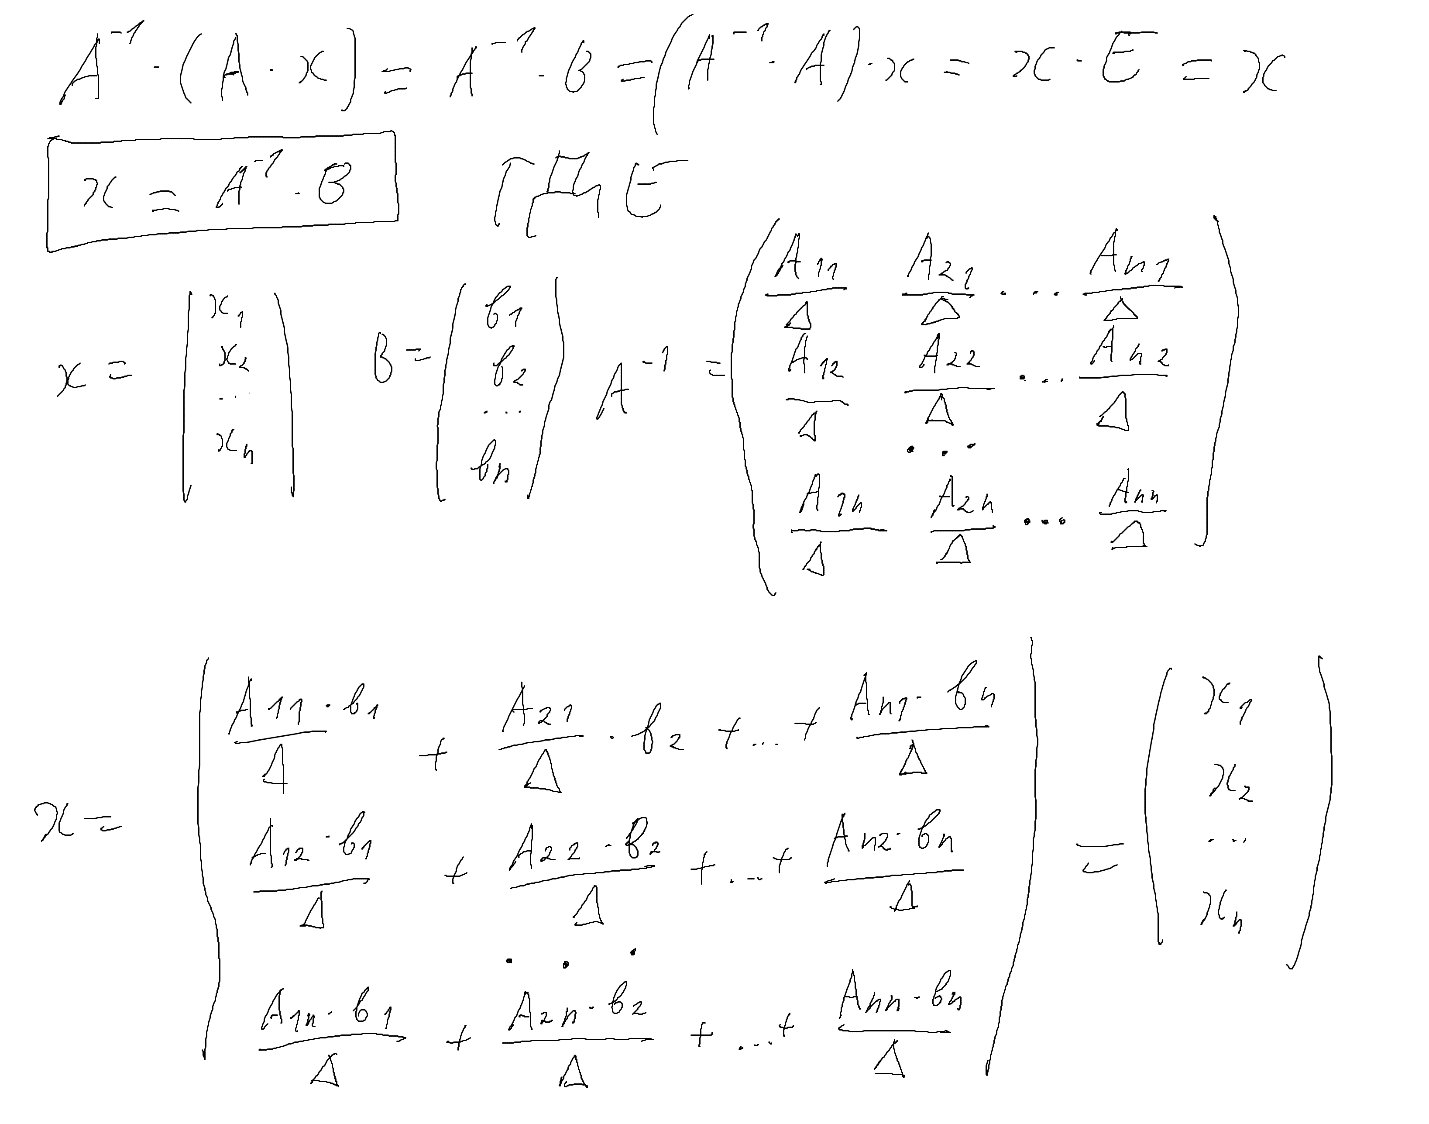 A⁻¹ · (A · x) = A⁻¹ · B = (A⁻¹ · A) · x = x · E = x
x = A⁻¹ · B ГДЕ
x = (x₁ x₂ ... xₙ) B = (b₁ b₂ ... bₙ) A⁻¹ = (A₁₁/Δ A₂₁/Δ ... Aₙ₁/Δ
A₁₂/Δ A₂₂/Δ ... Aₙ₂/Δ
...
A₁ₙ/Δ A₂ₙ/Δ ... Aₙₙ/Δ)
x = (A₁₁·b₁/Δ + A₂₁/Δ · b₂ + ... + Aₙ₁·bₙ/Δ
A₁₂·b₁/Δ + A₂₂·b₂/Δ + ... + Aₙ₂·bₙ/Δ
...
A₁ₙ·b₁/Δ + A₂ₙ·b₂/Δ + ... + Aₙₙ·bₙ/Δ) = (x₁ x₂ ... xₙ)